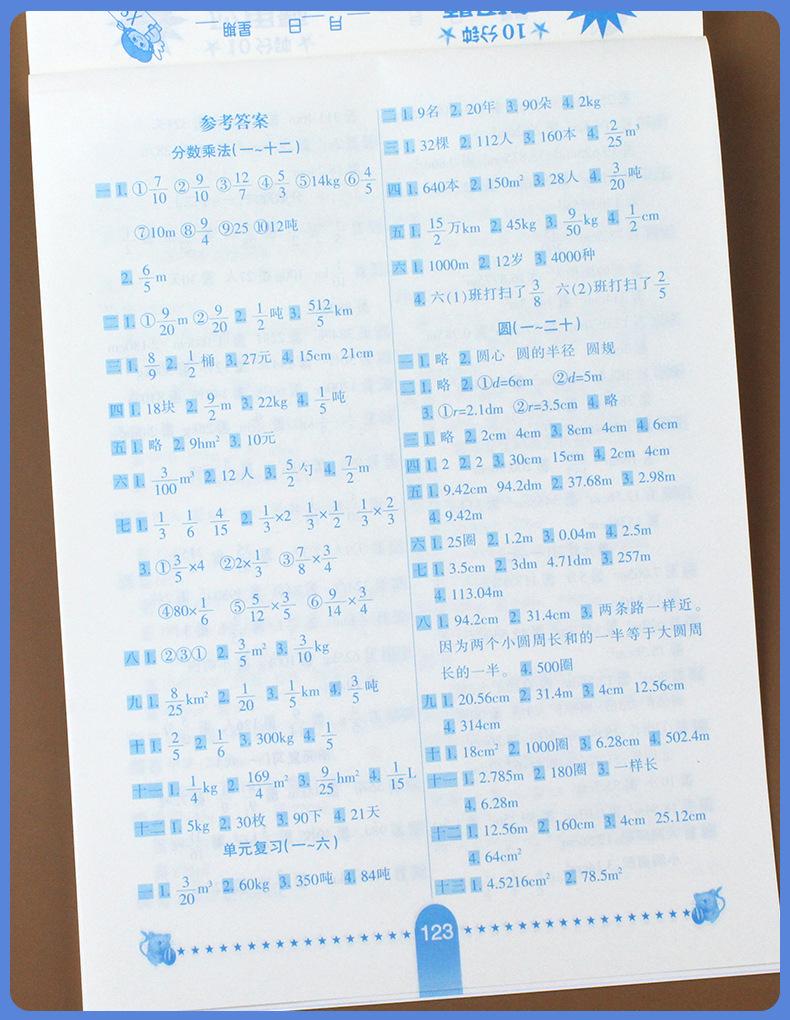 10分钟
月 日 星期
参考答案
分数乘法(一~十二)
一 1. ①7/10 ②9/10 ③12/7 ④5/3 ⑤14kg ⑥4/5
⑦10m ⑧9/4 ⑨25 ⑩12吨
2. 6/5m
二 1. ①9/20m ②9/20 2. 1/2吨 3. 512/5km
三 1. 8/9 2. 1/2桶 3. 27元 4. 15cm 21cm
四 1. 18块 2. 9/2m 3. 22kg 4. 1/5吨
五 1. 略 2. 9hm² 3. 10元
六 1. 3/100m³ 2. 12人 3. 5/2勺 4. 7/2m
七 1. 1/3 1/6 4/15 2. 1/3×2 1/3×1/2 1/3×2/3
3. ①3/5×4 ②2×1/3 ③7/8×3/4
④80×1/6 ⑤5/12×3/5 ⑥9/14×3/4
八 1. ②③① 2. 3/5m² 3. 3/10kg
九 1. 8/25km² 2. 1/20 3. 1/5km 4. 3/5吨
十 1. 2/5 2. 1/6 3. 300kg 4. 1/5
十一 1. 1/4kg 2. 169/4m² 3. 9/25hm² 4. 1/15L
十二 1. 5kg 2. 30枚 3. 90下 4. 21天
单元复习(一~六)
一 1. 3/20m³ 2. 60kg 3. 350吨 4. 84吨
二 1. 9名 2. 20年 3. 90朵 4. 2kg
三 1. 32棵 2. 112人 3. 160本 4. 2/25m³
四 1. 640本 2. 150m² 3. 28人 4. 3/20吨
五 1. 15/2万km 2. 45kg 3. 9/50kg 4. 1/2cm
六 1. 1000m 2. 12岁 3. 4000种
4. 六(1)班打扫了3/8 六(2)班打扫了2/5
圆(一~二十)
一 1. 略 2. 圆心 圆的半径 圆规
二 1. 略 2. ①d=6cm ②d=5m
3. ①r=2.1dm ②r=3.5cm 4. 略
三 1. 略 2. 2cm 4cm 3. 8cm 4cm 4. 6cm
四 1. 2 2. 2 3. 30cm 15cm 4. 2cm 4cm
五 1. 9.42cm 94.2dm 2. 37.68m 3. 2.98m
4. 9.42m
六 1. 25圈 2. 1.2m 3. 0.04m 4. 2.5m
七 1. 3.5cm 2. 3dm 4.71dm 3. 257m
4. 113.04m
八 1. 94.2cm 2. 31.4cm 3. 两条路一样近。
因为两个小圆周长和的一半等于大圆周
长的一半。 4. 500圈
九 1. 20.56cm 2. 31.4m 3. 4cm 12.56cm
4. 314cm
十 1. 18cm² 2. 1000圈 3. 6.28cm 4. 502.4m
十一 1. 2.785m 2. 180圈 3. 一样长
4. 6.28m
十二 1. 12.56m 2. 160cm 3. 4cm 25.12cm
4. 64cm²
十三 1. 4.5216cm² 2. 78.5m²
123